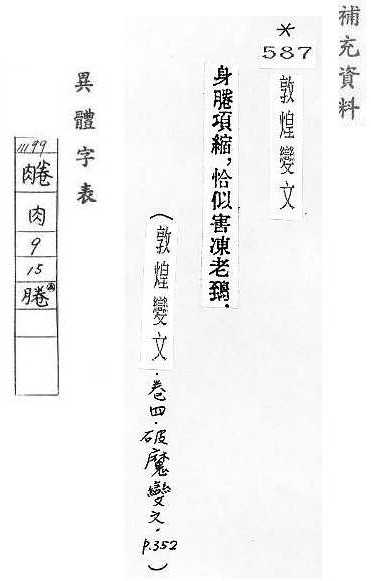 補充資料
*
587
敦煌變文
身腃項縮，恰似害凍老鵄．
（敦煌變文．卷四．破魔變文．P.352）
異體字表
11199
肉
9
15
腃